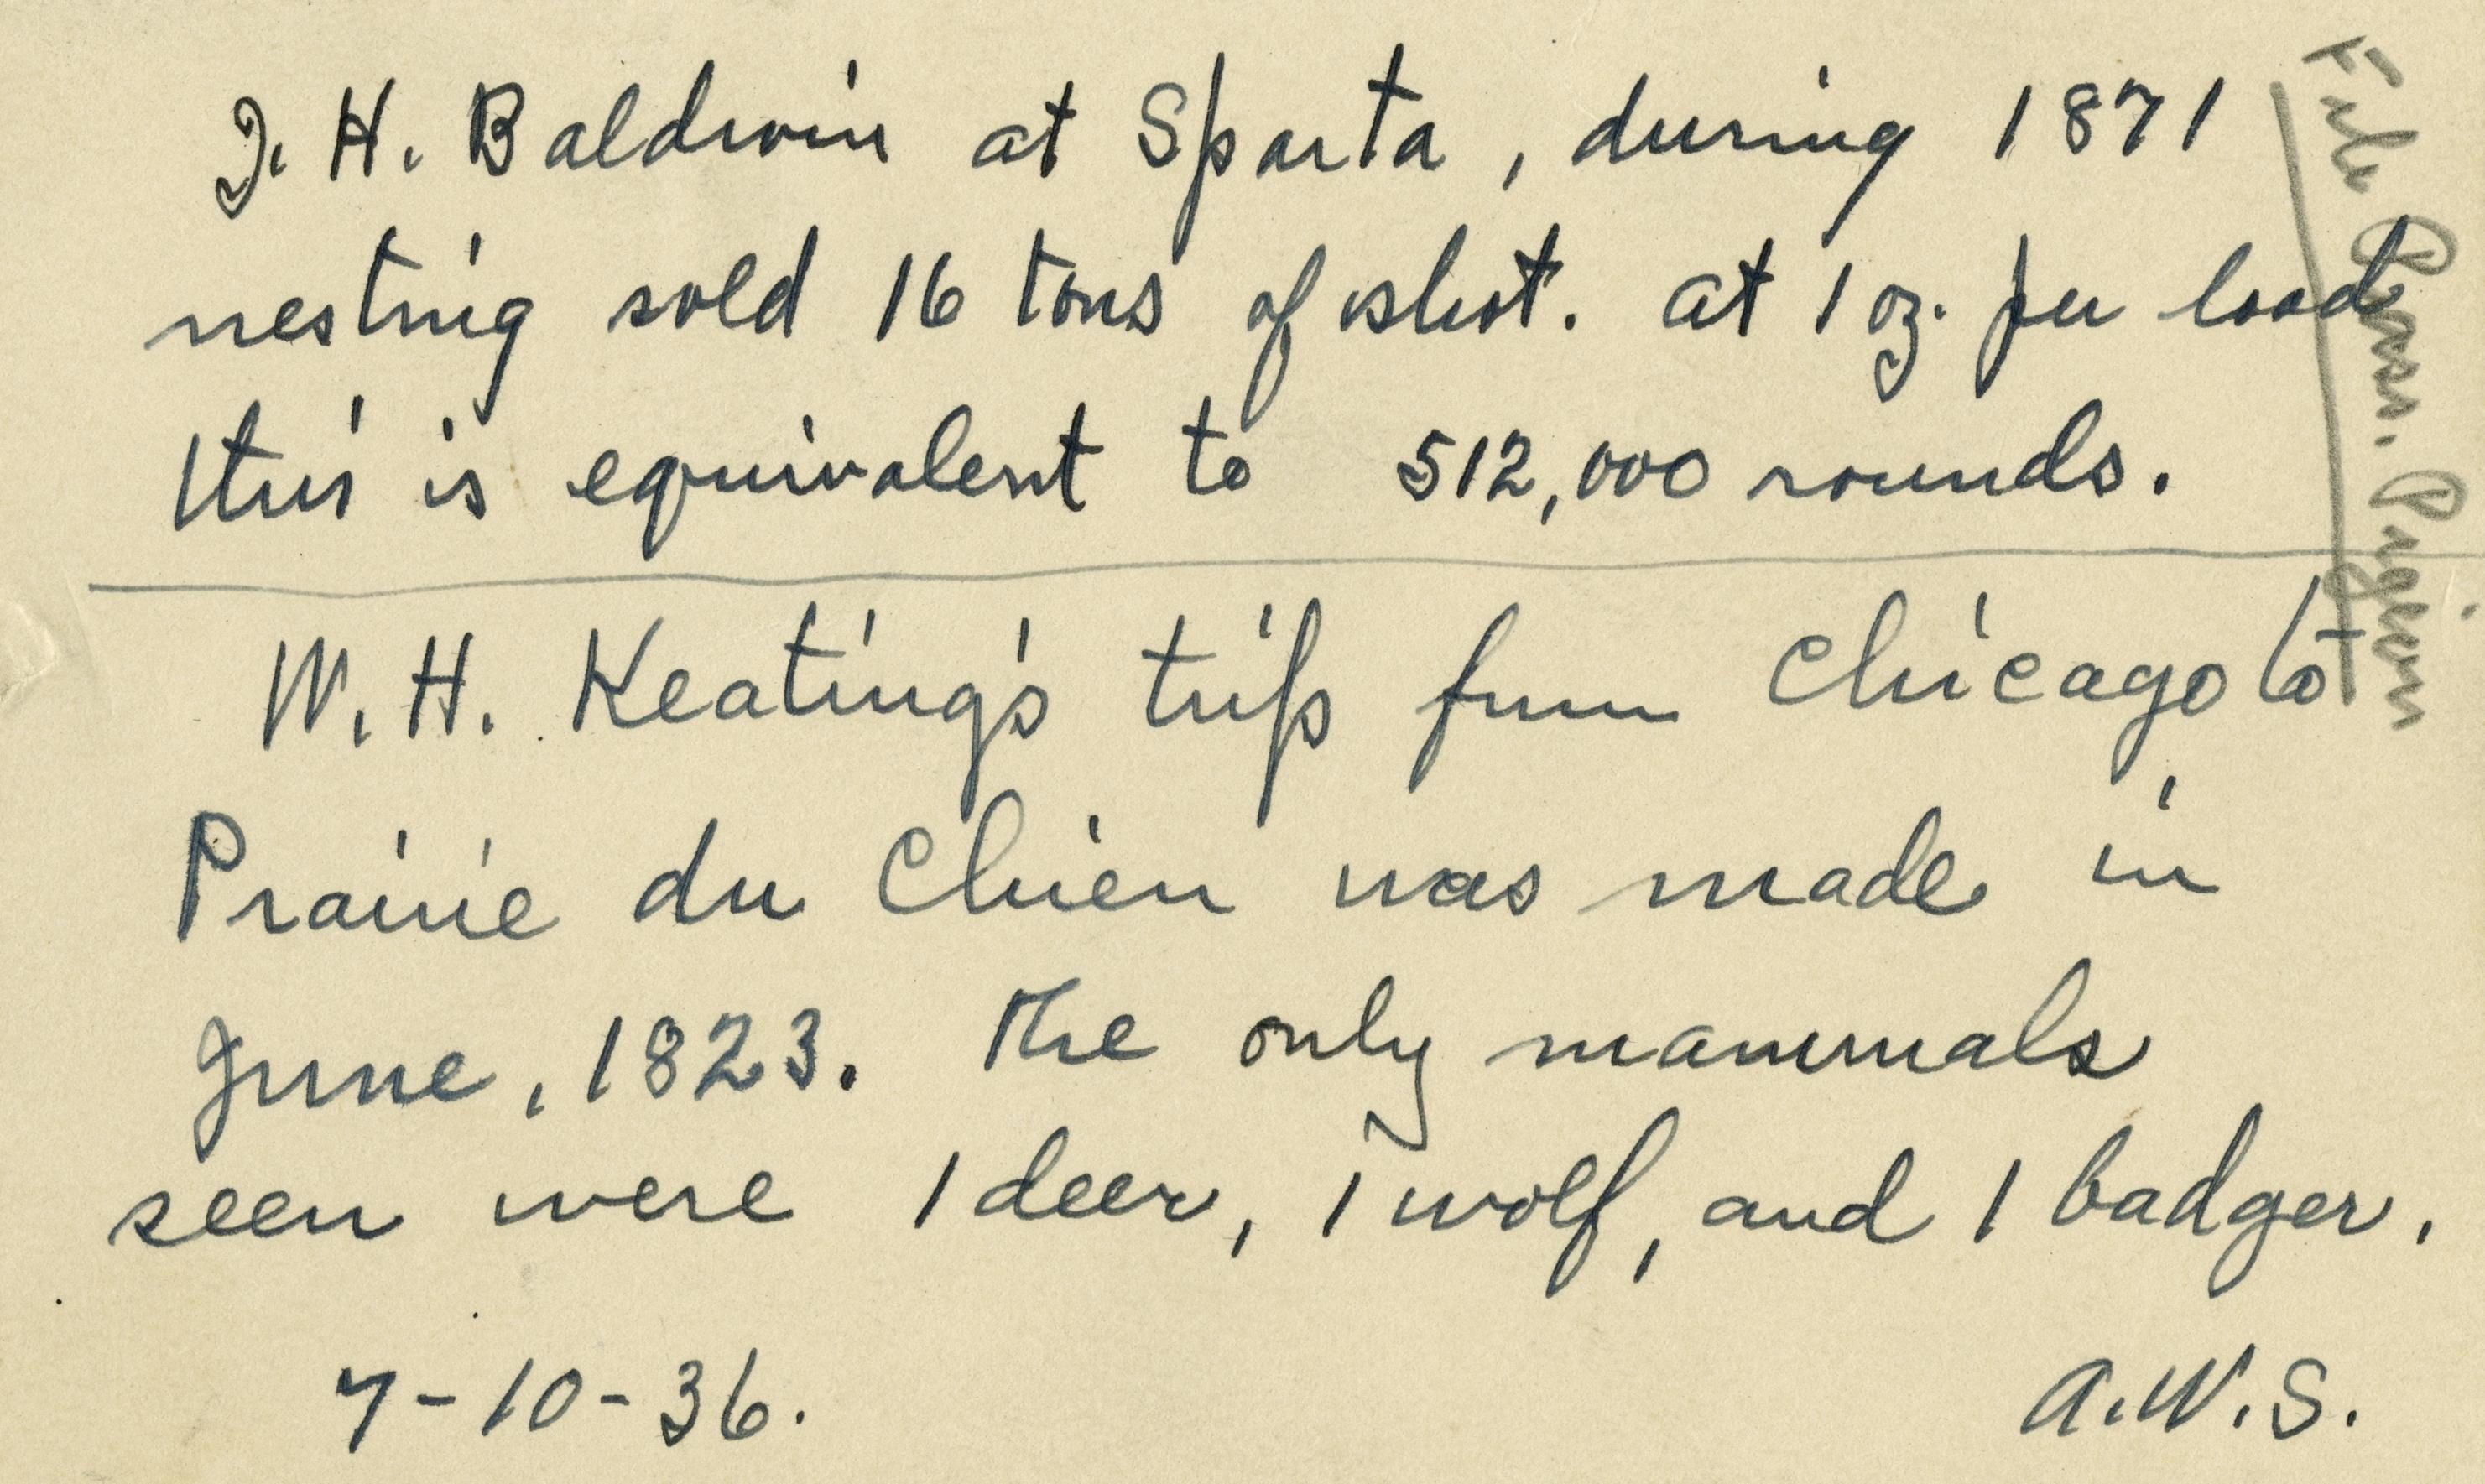 J. H. Baldwin at Sparta, during 1871
nesting sold 16 tons of shot. At 1 oz. per load
this is equivalent to 512,000 rounds.
W. H. Keating's trip from Chicago to
Prairie du Chien was made in
June, 1823. The only mammals
seen were 1 deer, 1 wolf, and 1 badger.
7-10-36. A.W.S.
File Pass. Pigeon